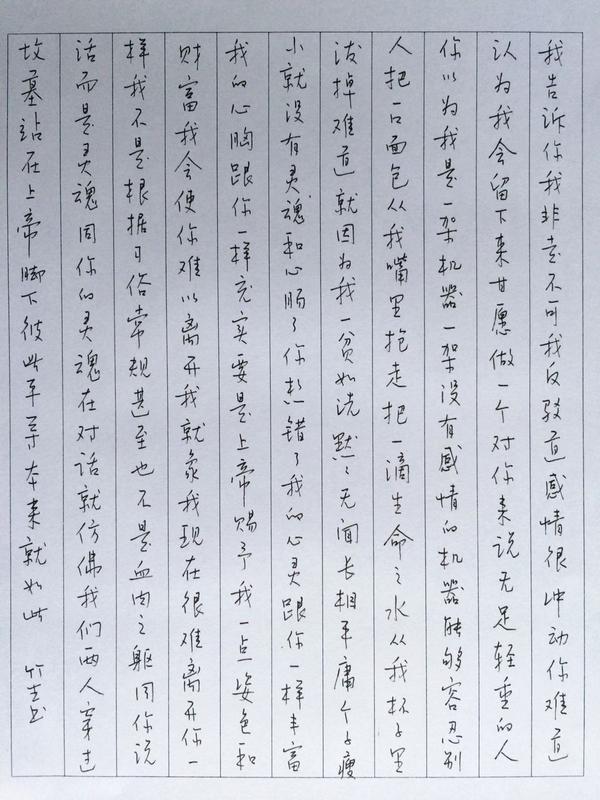 我告诉你我非走不可我反驳道感情很冲动你难道
认为我会留下来甘愿做一个对你来说无足轻重的人
你以为我是一架机器一架没有感情的机器能够容忍别
人把一口面包从我嘴里抢走把一滴生命之水从我杯子里
泼掉难道就因为我一贫如洗默〻无闻长相平庸个子瘦
小就没有灵魂和心肠了你想错了我的心灵跟你一样丰富
我的心胸跟你一样充实要是上帝赐予我一点姿色和
财富我会使你难以离开我就象我现在很难离开你一
样我不是根据习俗常规甚至也不是血肉之躯同你说
话而是灵魂同你的灵魂在对话就仿佛我们两人穿过
坟墓站在上帝脚下彼此平等本来就如此